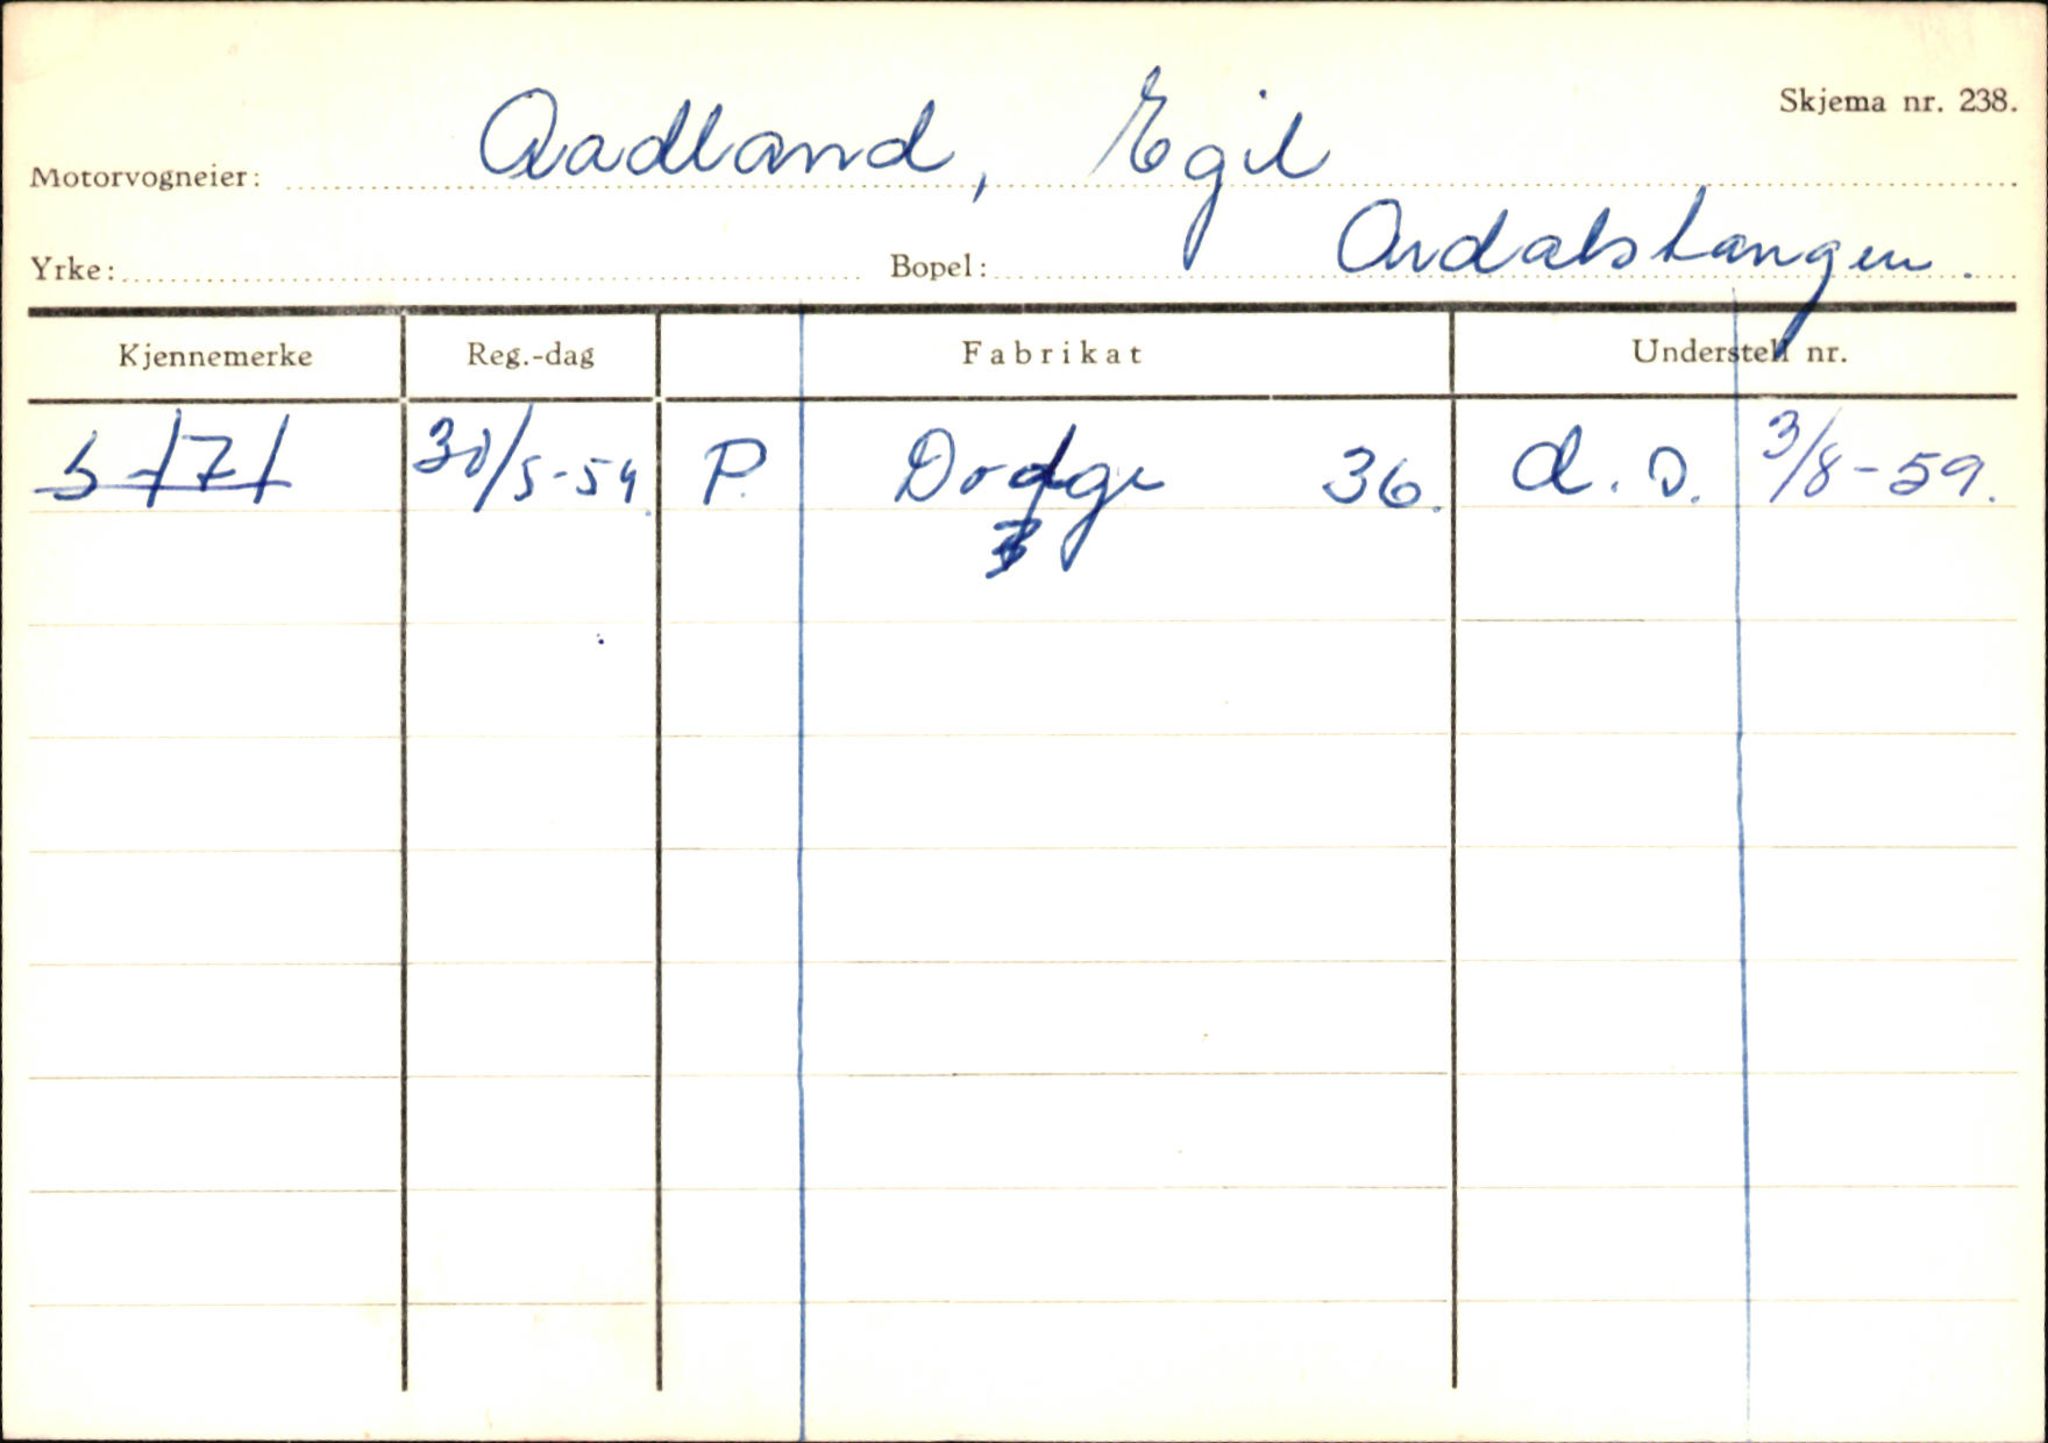 Skjema nr. 238.
Motorvogneier: Aadland, Egil
Yrke: Bopel: Ardalstangen.
Kjennemerke Reg.-dag Fabrikat Understell nr.
S-171 30/5-54. P. Dodge 36. d. D. 3/8-59.